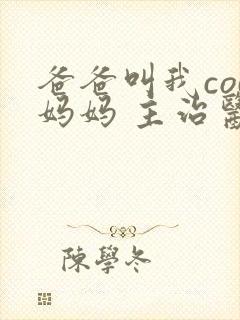 爸爸叫我co
妈妈 主治醫
陳學冬